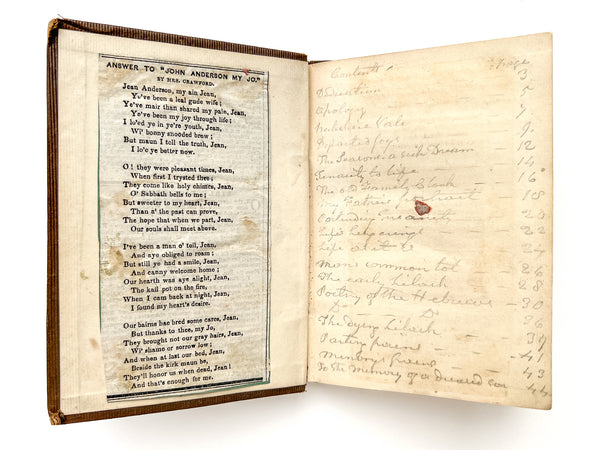 ANSWER TO "JOHN ANDERSON MY JO."
BY MRS. CRAWFORD.
Jean Anderson, my ain Jean,
Ye've been a leal gude wife;
Ye've mair than shared my pain, Jean,
Ye've been my joy through life;
I lo'ed ye in ye're youth, Jean,
Wi' bonny snooded brew;
But maun I tell the truth, Jean,
I lo'e ye better now.
O! they were pleasant times, Jean,
When first I trysted thee;
They come like holy chimes, Jean,
O' Sabbath bells to me;
But sweeter to my heart, Jean,
Than a' the past can prove,
The hope that when we part, Jean,
Our souls shall meet above.
I've been a man o' toil, Jean,
And aye obliged to roam;
But still ye had a smile, Jean,
And canny welcome home;
Our hearth was aye alight, Jean,
The kail pot on the fire,
When I cam back at night, Jean,
I found my heart's desire.
Our bairns hae bred some cares, Jean,
But thanks to thee, my Jo,
They brought not our gray hairs, Jean,
Wi' shame or sorrow low;
And when at last our bed, Jean,
Beside the kirk maun be,
They'll honor us when dead, Jean!
And that's enough for me.
Contents Page
3
Apology 5
7
9
12
14
Tenacity to Life 16
The old Family Clock
My Father's Portrait 18
22
Life as it is 24
More common lot 26
The early Lilach 28
Poetry of the Hebrews 30
Do Do 36
The dying Lilach 39
Parting 41
43
To the Memory of a 44